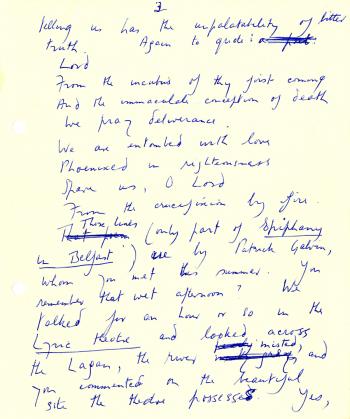 3
telling us has the unpalatability of bitter
truth. Again to quote:
Lord
From the incubus of thy first coming
And the immaculate conception of death
We pray deliverance.
We are entombed with love
Phoenixed in righteousness
Spare us, O Lord
From the crucifixion by fire.
These lines (only part of Epiphany
in Belfast) are by Patrick Galvin,
whom you met this summer. You
remember that wet afternoon? We
talked for an hour or so in the
Lyric theatre and looked across
the Lagan, the river misted, and
you commented on the beautiful
site the theatre possesses. Yes,